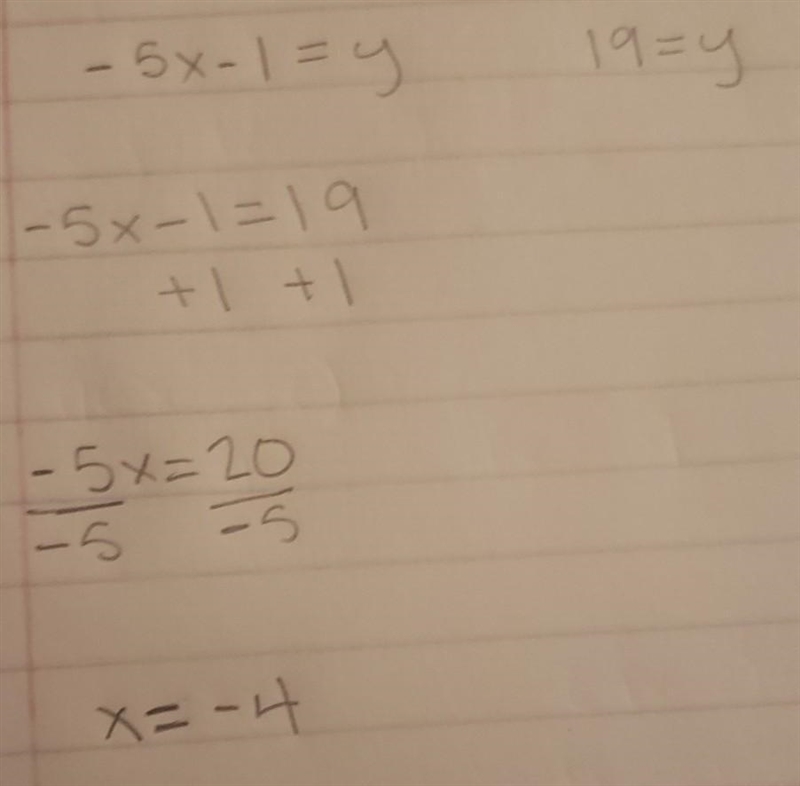 -5x-1=y 19=y
-5x-1=19
+1 +1
-5x=20
-5 -5
x=-4